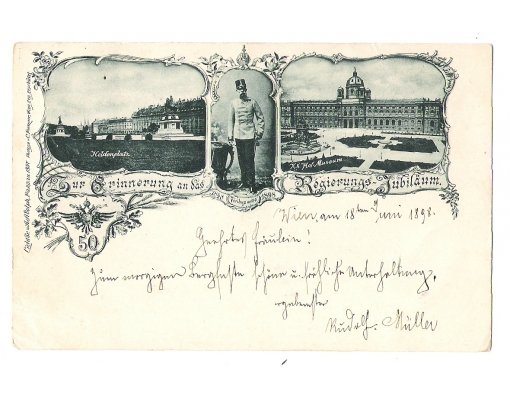 Heldenplatz
K.k. Hof-Museum
Zur Erinnerung an das Regierungs-Jubiläum.
50
Wien, am 18ten Juni 1898.
Geehrtes Fräulein!
Zum morgigen Bergfeste schöne u. fröhliche Unterhaltung,
ergebenster
Rudolf Müller